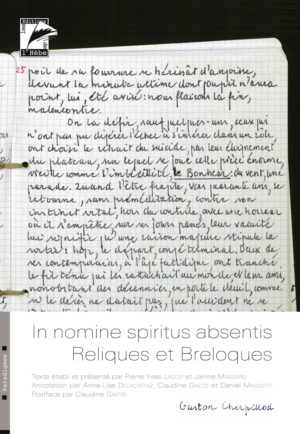 les
Editions
de
l'Hèbe
25 poil de sa fourrure se hérisât d'angoisse,
devant la minute ultime dont poupil n'aura
point, lui, été avisé: nous flairons la fin,
malencontre.
On la défie, sauf quelques-uns, ceux qui
n'ont pas pu digérer l'échec de s'insérer dans un rôle,
ont choisi le retrait du suicide, par leur éloignement
du plateau, sur lequel se joue cette pièce énorme,
vieille comme l'imbécillité, le Bonheur: du vent, une
parade. Quand l'être fragile, vers quarante ans, se
retourne, sans préméditation, contre son
instinct vital, hors du contrôle avec une horreur
où il s'empêtre sur ses jours passés, leur vacuité
lui signifie qu'une raison majeure stimule la
départ, comme
ses contemporains, à l'âge fatidique ont tranché
le fil ténu qui les rattachait au monde et leur ami,
nonobstant des décennies, en porte le deuil, comme
si le décès ne datait pas, que l'accident ne se
In nomine spiritus absentis
Reliques et Breloques
Texte établi et présenté par Pierre Yves Lador et Janine Massard
Annotation par Anne-Lise Delacrétaz, Claudine Gaetzi et Daniel Maggetti
Postface par Claudine Gaetzi
Gaston Cherpillod
Paradigmes